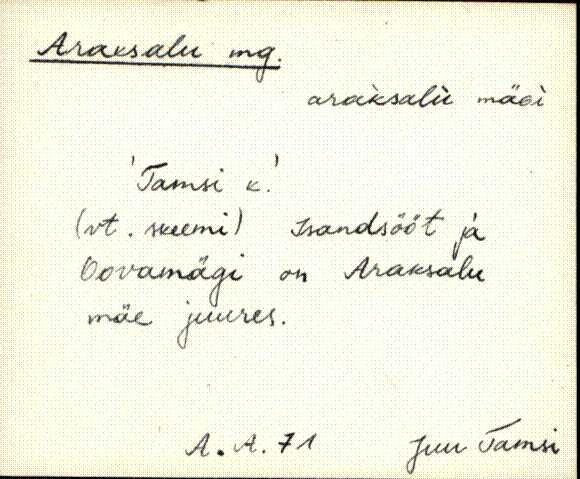 Araksalu mg.
araksalu mägi
'Tamsi k.'
(vt. skeemi) Isandsööt ja
Oovamägi on Araksalu
mäe juures.
A. A. 71 Juu Tamsi